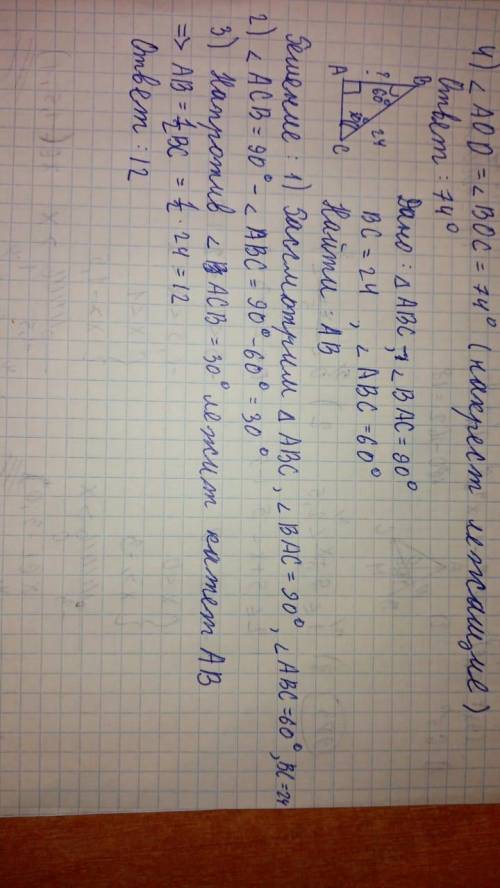 4) ∠AOD = ∠BOC = 74° (накрест лежащие)
Ответ: 74°
B
?
60°
24
A
30°
C
Дано: △ABC, ∠BAC = 90°
BC = 24, ∠ABC = 60°
Найти: AB
Решение: 1) Рассмотрим △ABC, ∠BAC = 90°, ∠ABC = 60°, BC = 24
2) ∠ACB = 90° - ∠ABC = 90° - 60° = 30°
3) Напротив ∠ACB = 30° лежит катет AB
=> AB = ½BC = ½ · 24 = 12
Ответ: 12